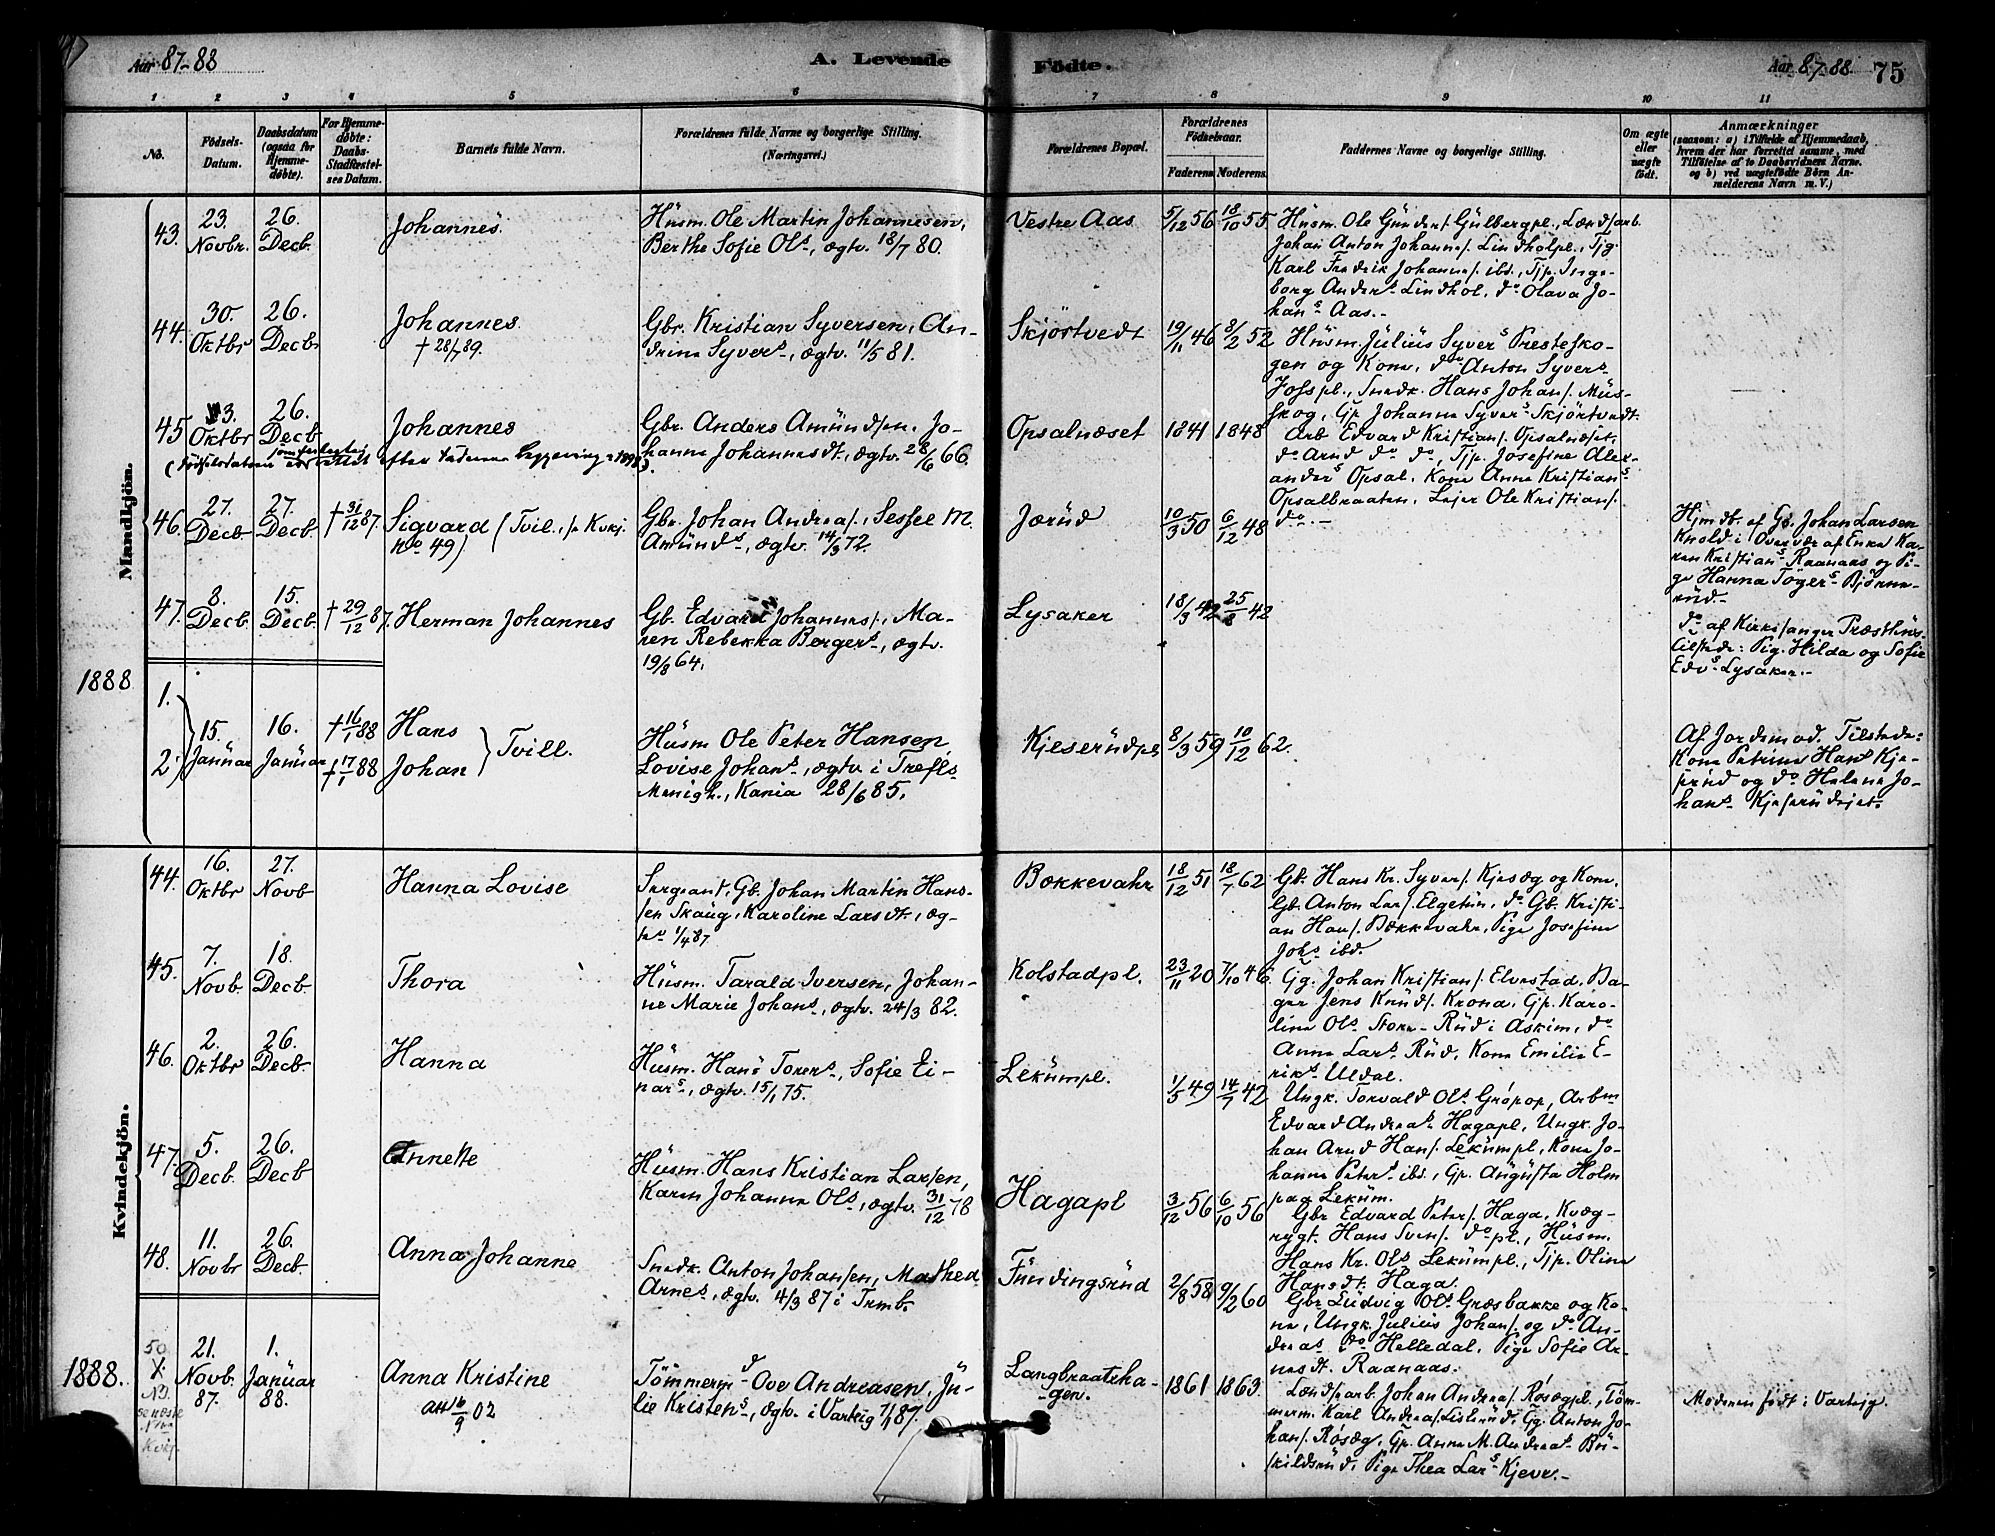 Aar 87-88
A. Levende
Födte.
Aar 87-88
75
1 2 3 4 5 6 7 8 9 10 11
No.
Födsels-
Datum.
Daabsdatum
(ogsaa for
Hjemme-
døbte).
For Hjemme-
døbte:
Daabs-
Stadfæstel-
ses Datum.
Barnets fulde Navn.
Forældrenes fulde Navne og borgerlige Stilling.
(Næringsvei.)
Forældrenes Bopæl.
Forældrenes
Födselsaar.
Faderens
Moderens
Faddernes Navne og borgerlige Stilling.
Om ægte
eller
uægte
født.
Anmærkninger
(saasom: a) i Tilfælde af Hjemmedaab,
hvem der har forrettet samme, med
Tilföielse af to Daabsvidners Navne.
og b) ved uægtefödte Børn An-
melderens Navn m. V.)
Mandkjön.
43.
23.
Novbr.
26.
Decb.
Johannes.
Husm. Ole Martin Johannesen,
Berthe Sofie Ols., ægtv. 18/7 80.
Vestre Aas
5/12 56
18/10 55
Husm. Ole Gunders. Gulbergpl., Landsarb.
Johan Anton Johanns. Lindholpl., Tjg.
Karl Fredrik Johanns. ibd., Tjp. Inge-
borg Anders. Lindhol, do Olava Jo-
hans Aas.-
44.
30.
Oktbr
26.
Decb
Johannes.
† 28/7 89.
Gbr. Kristian Syversen, An-
drine Syvers., ægtv. 11/5 81.
Skjörtvedt
19/11 46
8/2 52
Husm. Julius Syvers Presteko-
gen og Kone, do Anton Syvers.
Snedk. Hans Johans. Mus-
skog, Gp Johanne Syvers Skjörtvedt.
45
3.
Oktbr
26.
Decb
Johannes
Gbr. Anders Amundsen, Jo-
hanne Johannesdt., ægtv. 28/6 66.
Opsalnæset
1841
1848
Arb Edvard Kristians. Opsalnæset,
do Arnd do do, Tjp. Josefine Alex-
anders Opsal, Kone Anne Kristians
Opsalbraaten, Lejer Ole Kristians.
do.-
46.
27.
Decb
27.
Decb.
† 31/12 87.
Sigvard (Tvil., s. Kvkj.
No 49)
Gbr. Johan Andreas., Sessel M.
Amunds., ægtv. 14/3 72.
Jærud
10/3 50
6/12 48
Hjmdb. af Gb. Johan Larsen
Knold i Overvær af Enke Ka-
ren Kristians Raanaas og Pi-
ge Hanna Töger Björne-
rud.-
47.
8.
Decb.
15.
Decb.
† 29/12 87.
Herman Johannes
Gb. Edvard Johanns., Ma-
ren Rebekka Bergers., ægtv.
19/8 64.
Lysaker
18/3 42
25/8 42
do af Kirkesanger Præsthus
Tilstede: Pig. Hilda og Sofie
Edvs. Lysaker.-
1888
1.
2.
15.
Januar
16.
Januar
† 16/1 88
† 17/1 88
Hans
Johan
} Tvill.
Husm Ole Peter Hansen,
Lovise Johans., ægtv. i Trefls
Menigh., Kania 28/6 85.
Kjeserudpl
8/3 59
10/12 62.
Af Jordemod. Tilstede:
Kone Petrine Hans Kje-
serud og do Helene Jo-
hans. Kjeserudejet.
Kvindekjön.
44.
16.
Oktbr
27.
Novb
Hanna Lovise
Sergeant, Gb. Johan Martin Hans-
sen Skaug, Karoline Larsdt., æg-
tv. 1/4 87.
Bækkevahr
18/12 51
18/7 62
Gb. Hans Kr. Syvers. Kjesæg og Kone,
Gb. Anton Lars. Elgetun, do Gb. Kristi-
an Hans. Bækkevahr, Pige Josefine
Johs ibd.
45.
7.
Novb.
18.
Decb.
Thora
Husm. Tarald Iversen, Johan-
ne Marie Johans., ægtv. 24/3 82.
Kolstadpl.
23/11 20
7/10 46
Gg. Johan Kristians. Elvestad, Ba-
ger Jens Knuds. Krona, Gp. Karo-
line Ols Store-Rud i Askim, do
Anne Lars. Rud, Kone Emilie E-
riks Uldal.
46.
2.
Oktbr
26.
Decb.
Hanna
Husm. Hans Torers., Sofie Ei-
nars., ægtv. 15/1 75.
Lekumpl.
1/5 49
14/7 42
Ungk. Torvald Ols. Gröpop, Arbm
Edvard Andreas Hagapl, Ungk. Jo-
han Arnd Hans. Lekumpl, Kone Jo-
hanne Peters ibd., Gp. Augusta Holm
paa Lekum.
47.
5.
Decb.
26.
Decb
Annette
Husm. Hans Kristian Larsen,
Karen Johanne Ols., ægtv. 31/12 78
Hagapl
3/12 56
6/10 56
Gbr Edvard Peters. Haga, Kvæg-
rygt. Hans Svens. do pl., Husm.
Hans Kr. Ols. Lekumpl., Tjp. Oline
Hansdt. Haga.
48.
11.
Novbr
26.
Decb.
Anna Johanne
Snedk. Anton Johansen, Mathea
Arnes., ægtv. 4/3 87 i Trmb.
Fundingsrud
2/8 58
9/2 60
Gbr Ludvig Ols Græsbakke og Ko-
ne, Ungk. Julius Johans. og do An-
dreas do Helledal, Pige Sofie Ar-
nesdt. Raanaas.
1888.
50
21.
Novb.
87.
1.
Januar
88.
Anna Kristine
att 16/9 02
Tömmerm. Ove Andreasen, Ju-
lie Kristens., ægtv. i Varteig 7/1 87.
Langbraateha-
gen.
1861
1863.
Landsarb. Johan Andreas. Rösægpl., Töm-
merm. Karl Andreas. Lislerud, Gg. Anton Jo-
hans. Rösæg, Gp. Anne M. Andreas Bu-
skildsrud, Pige Thea Lars. Kjever.-
Moderen født i Varteig.